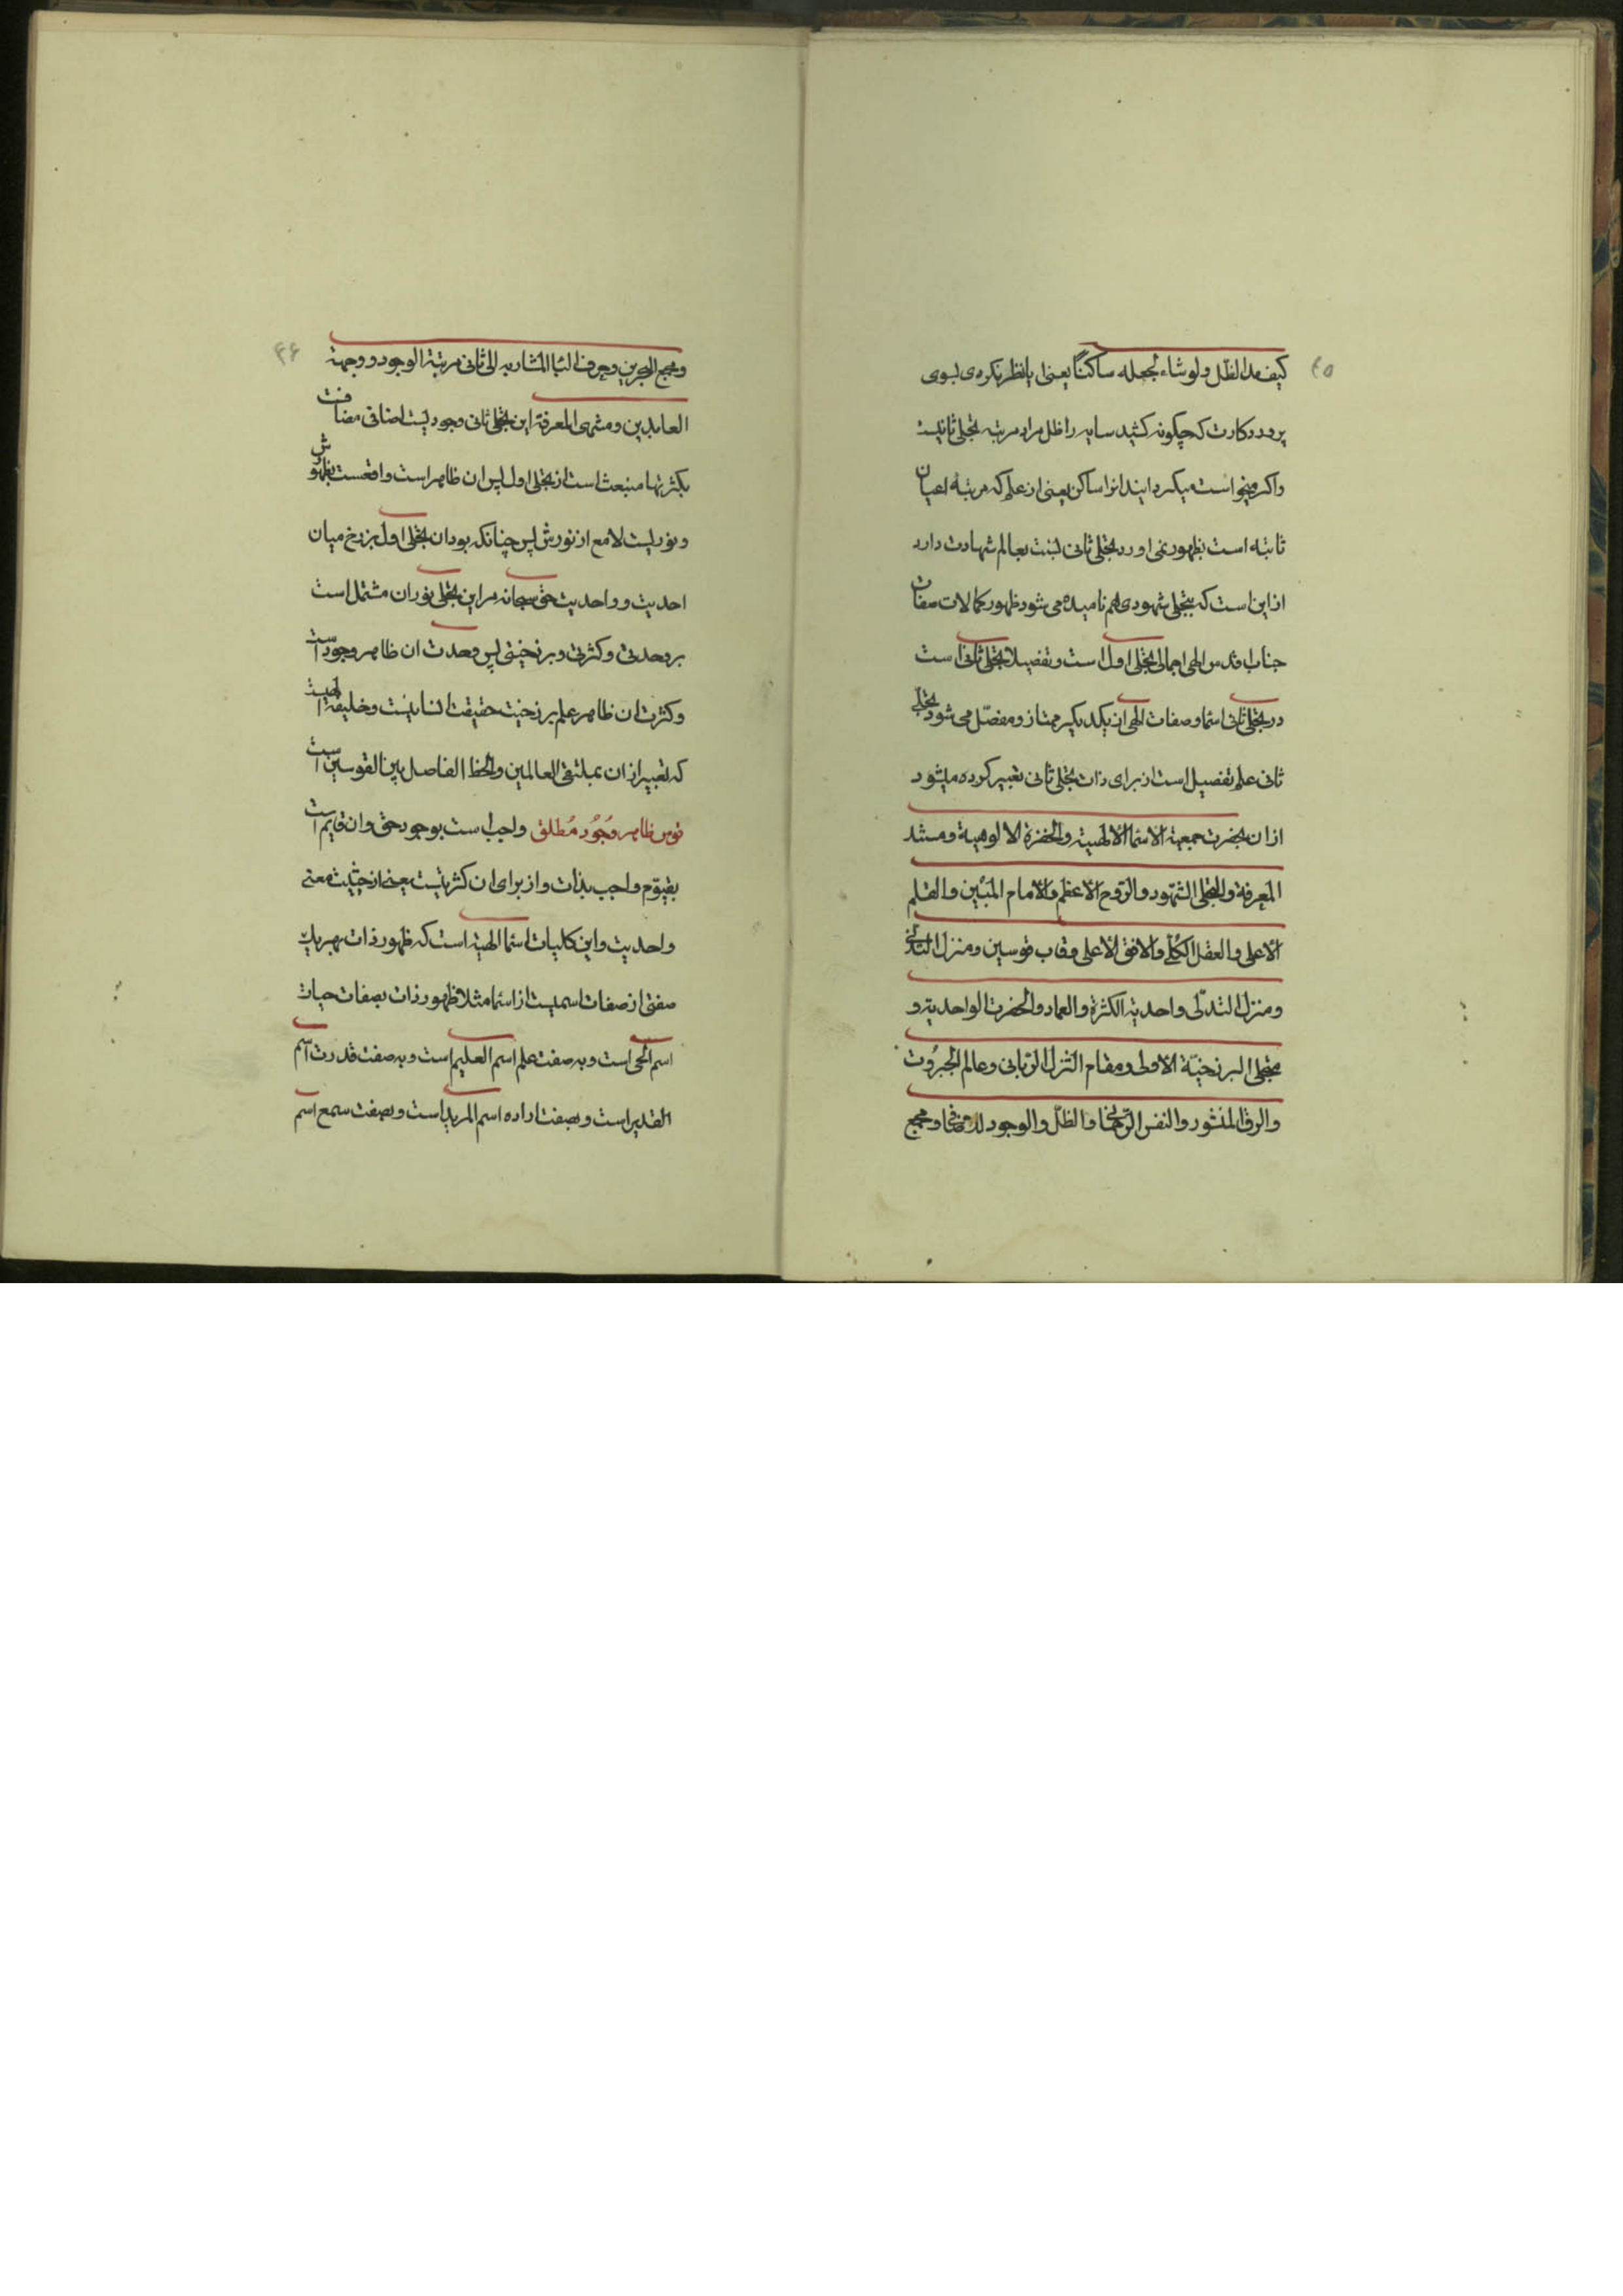 ۴۵
کیف مد الظل ولو شاء لجعله ساکنا یعنی ایا نظر نکردی بسوی
پروردکارت که چکونه کشید سایه را ظل مراد مرتبه تجلی ثانیست
واکر میخواست میکردانید انرا ساکن یعنی از علم که مرتبه اعیان
ثابته است بظهور نمی اورد تجلی ثانی نسبت بعالم شهادت دارد
از این است که بتجلی شهودی هم نامیده می شود ظهور کمالات صفات
جناب اقدس الهی اجمالا تجلی اول است وتفصیلا تجلی ثانی است
در تجلی ثانی اسما وصفات الهی از یکدیکر ممتاز ومفصل می شود تجلی
ثانی علم تفصیلی است از برای ذات تجلی ثانی تعبیر کرده میشود
از ان بحضرت جمعیة الاسما الالهیة والحضرة الالوهیة ومسند
المعرفة والتجلی الشهود والروح الاعظم والامام المبین والقلم
الاعلی والعقل الکلی والافق الاعلی وقاب قوسین ومنزل التدانی
ومنزل التدلی واحدیة الکثرة والعماد والحضرت الواحدیة و
مجلی البرزخیة الاولی ومقام التنزل الربانی وعالم الجبروت
والرق المنشور والنفس الرحمانی والظل والوجود الاضافی ومجمع
۴۶
ومجمع البحرین وحرف البا المشار به الی ثانی مرتبة الوجود ووجهة
العابدین ومنتهی المعرفة این تجلی ثانی وجودیست اضافی مضافت
بکثرتها منبعث است از تجلی اول پس ان ظاهر است واقعست بظهورش
ونوریست لامع از نورش پس چنانکه بود ان تجلی اول برزخ میان
احدیت وواحدیت حق سبحانه مر این تجلی نوران مشتمل است
بر وحدتی وکثرتی وبرزخیتی پس وحدت ان ظاهر وجود است
وکثرت ان ظاهر علم برزخیت حقیقت انسانیست وخلیفة الهیت
که تعبیر از ان بملتقی العالمین والخط الفاصل بین القوسین است
قوس ظاهر وجود مطلق واجب است بوجود حق وان قایم است
بقیوم واجب بذات واز برای ان کثرتیست یعنی از حیثیت معنی
واحدیت واین کلیات اسما الهیة است که ظهور ذات بهر یک
صفتی از صفات اسمیست از اسما مثلا ظهور ذات بصفات حیات
اسم الحی است وبه صفت علم اسم العلیم است وبه صفت قدرت اسم
القدیر است وبصفت اراده اسم المرید است وبصفت سمع اسم